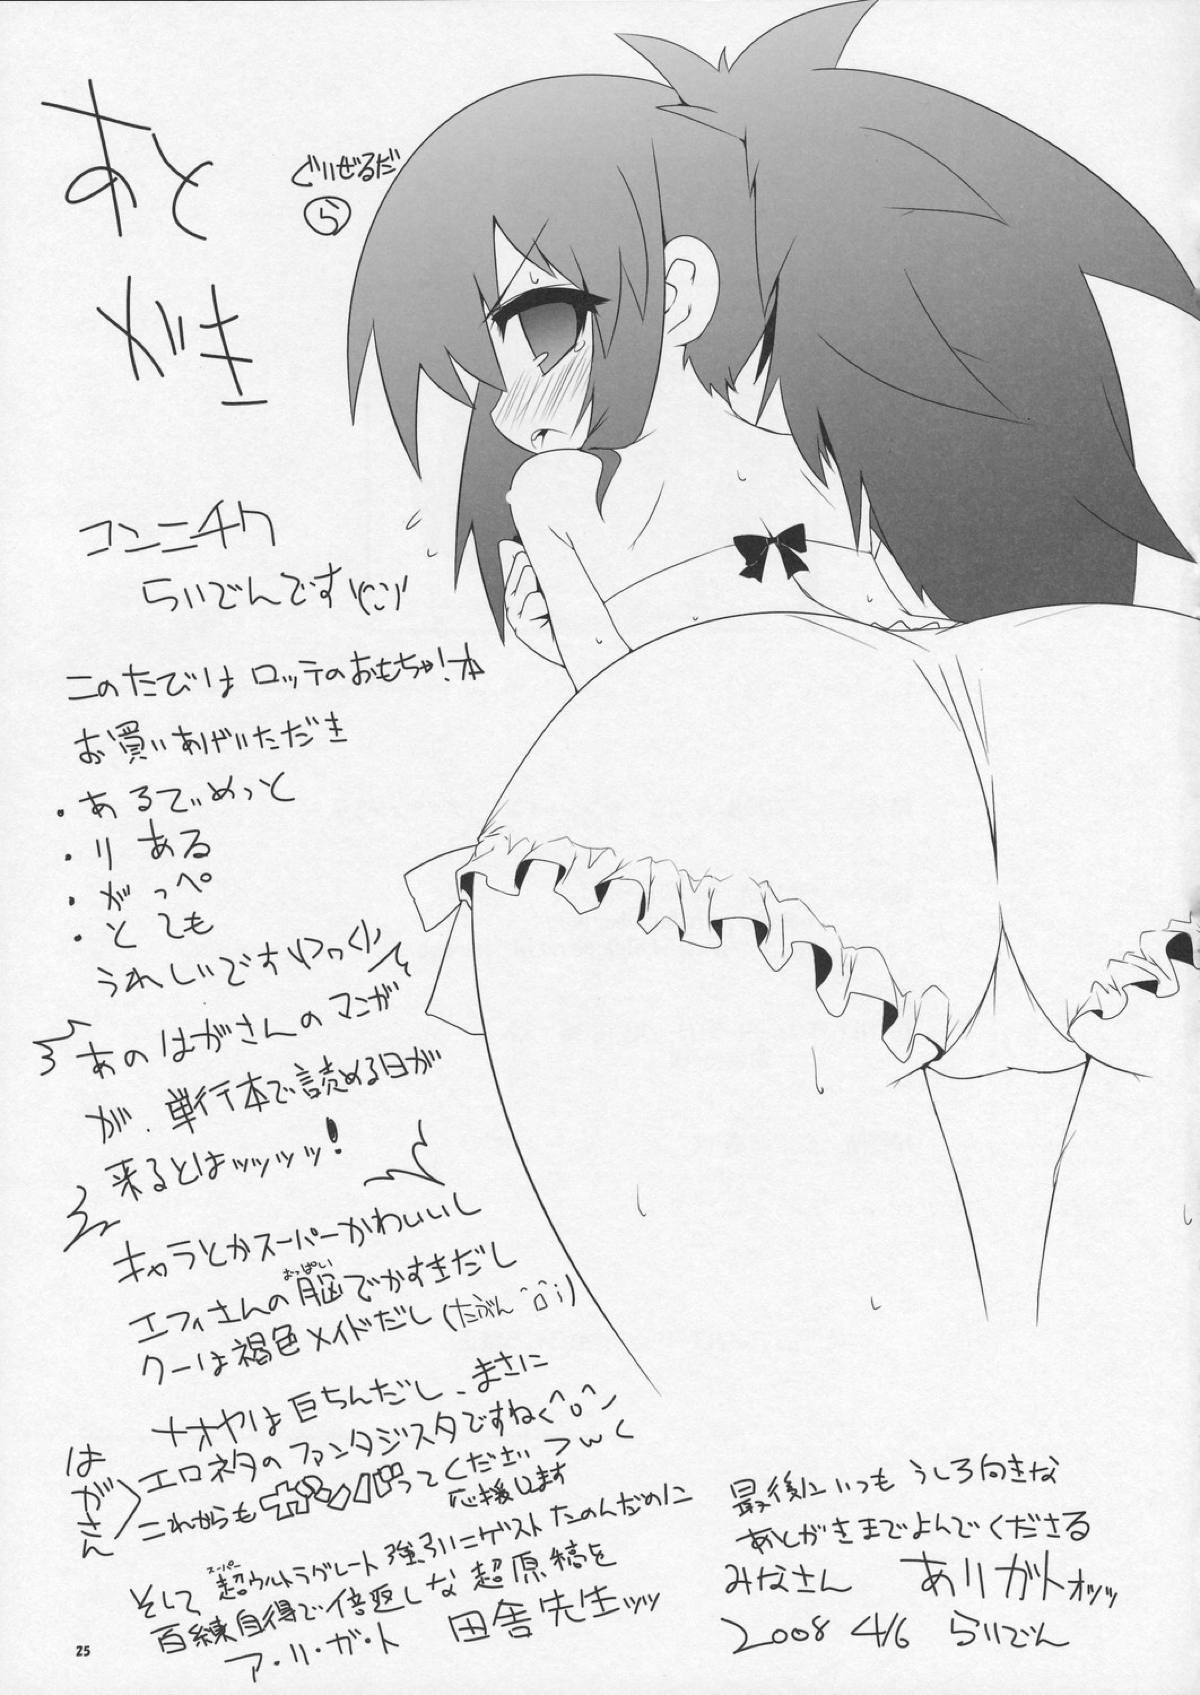 あと
がき
ぐいぜるだ
ら
コンニチワ
らいでんです
このたびは ロッテのおもちゃ!本
お買いあげいただき
・あるでぃめっと
・りある
・がっぺ
・とても
うれしいです
あのはがさんのマンガ
が、単行本で読める日が
来るとはッッッッ!
キャラとかスーパーかわいいし
おっぱい
エフィさんの脳でかすぎだし
クーは褐色メイドだし(たぶん^o^;)
ナオヤは巨ちんだし、まさに
エロネタのファンタジスタですね
はがさん
これからもガンバってください
応援します
スーパー
そして超ウルトラグレート強引にゲストたのんだのに
百練自得で倍返しな超原稿を
ア・リ・ガ・ト 田舎先生ッッ
最後にいつもうしろ向きな
あとがきまでよんでくださる
みなさん ありガトオッッ
2008 4/6 らいでん
25